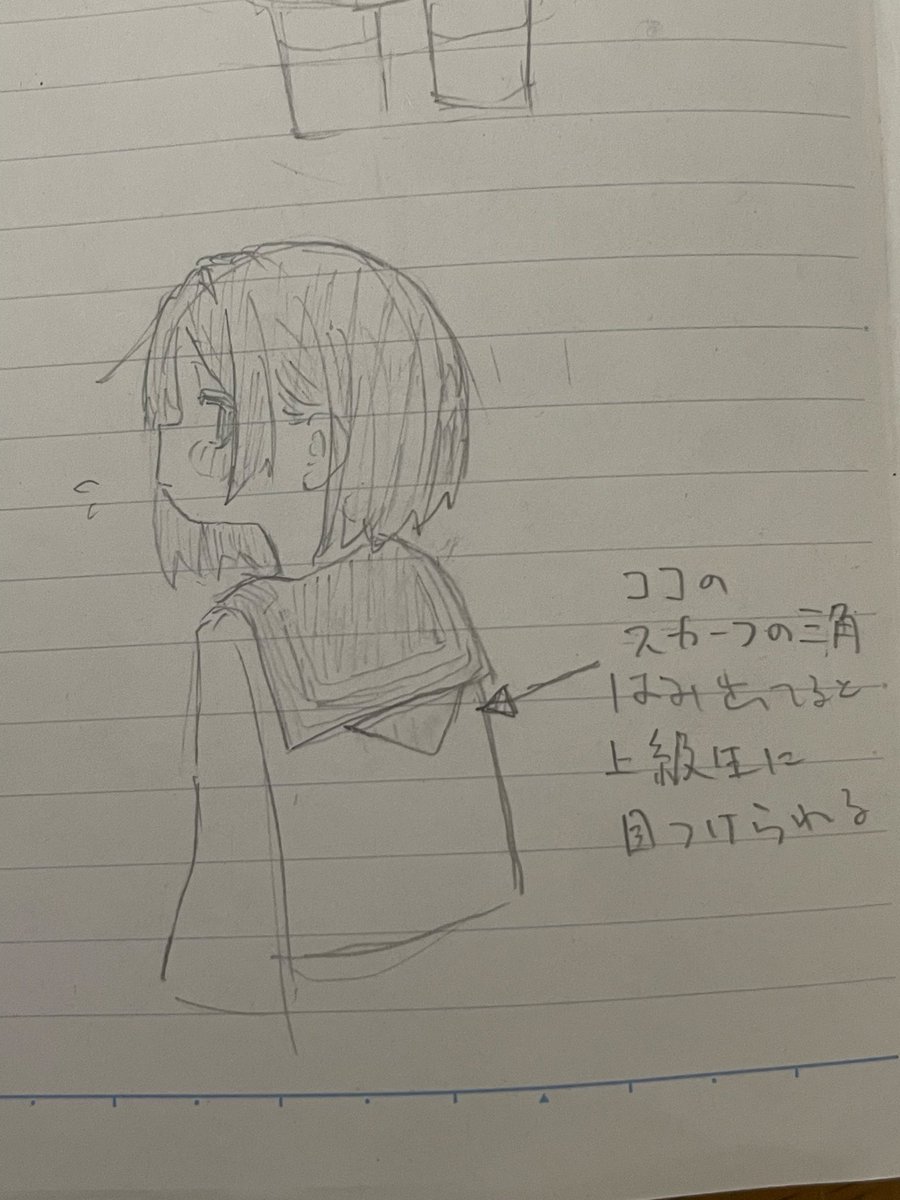 ココの
スカーフの三角
はみ出てると
上級生に
目つけられる